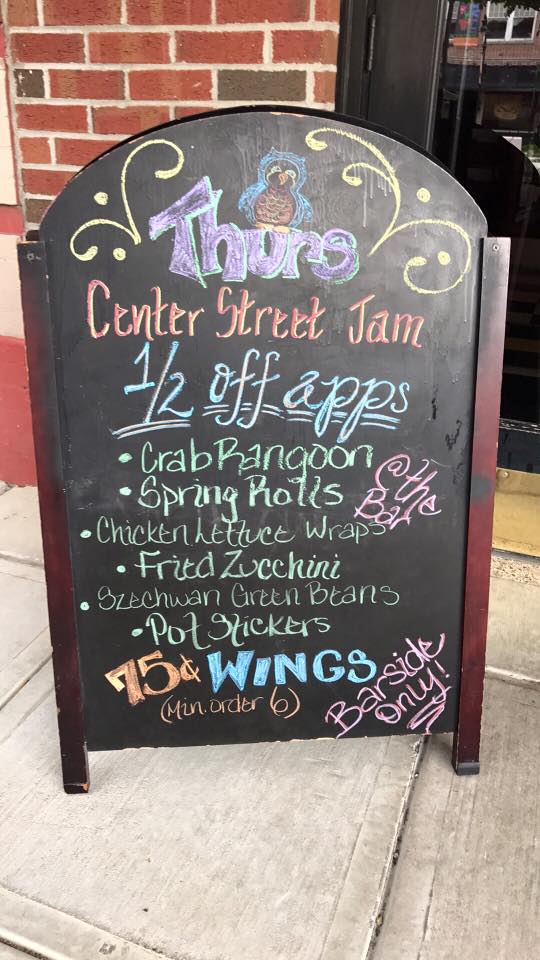 Thurs
Center Street Jam
1/2 off apps
• Crab Rangoon
• Spring Rolls
@ the
Bar
• Chicken Lettuce Wraps
• Fried Zucchini
• Szechwan Green Beans
• Pot Stickers
75¢ WINGS
(Min. order 6)
Barside
only!